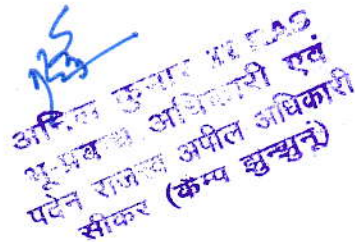 कुमार RAS
भू-प्रबन्ध अधिकारी एवं
पदेन राजस्व अपील अधिकारी
सीकर (कैम्प झुन्झुनू)